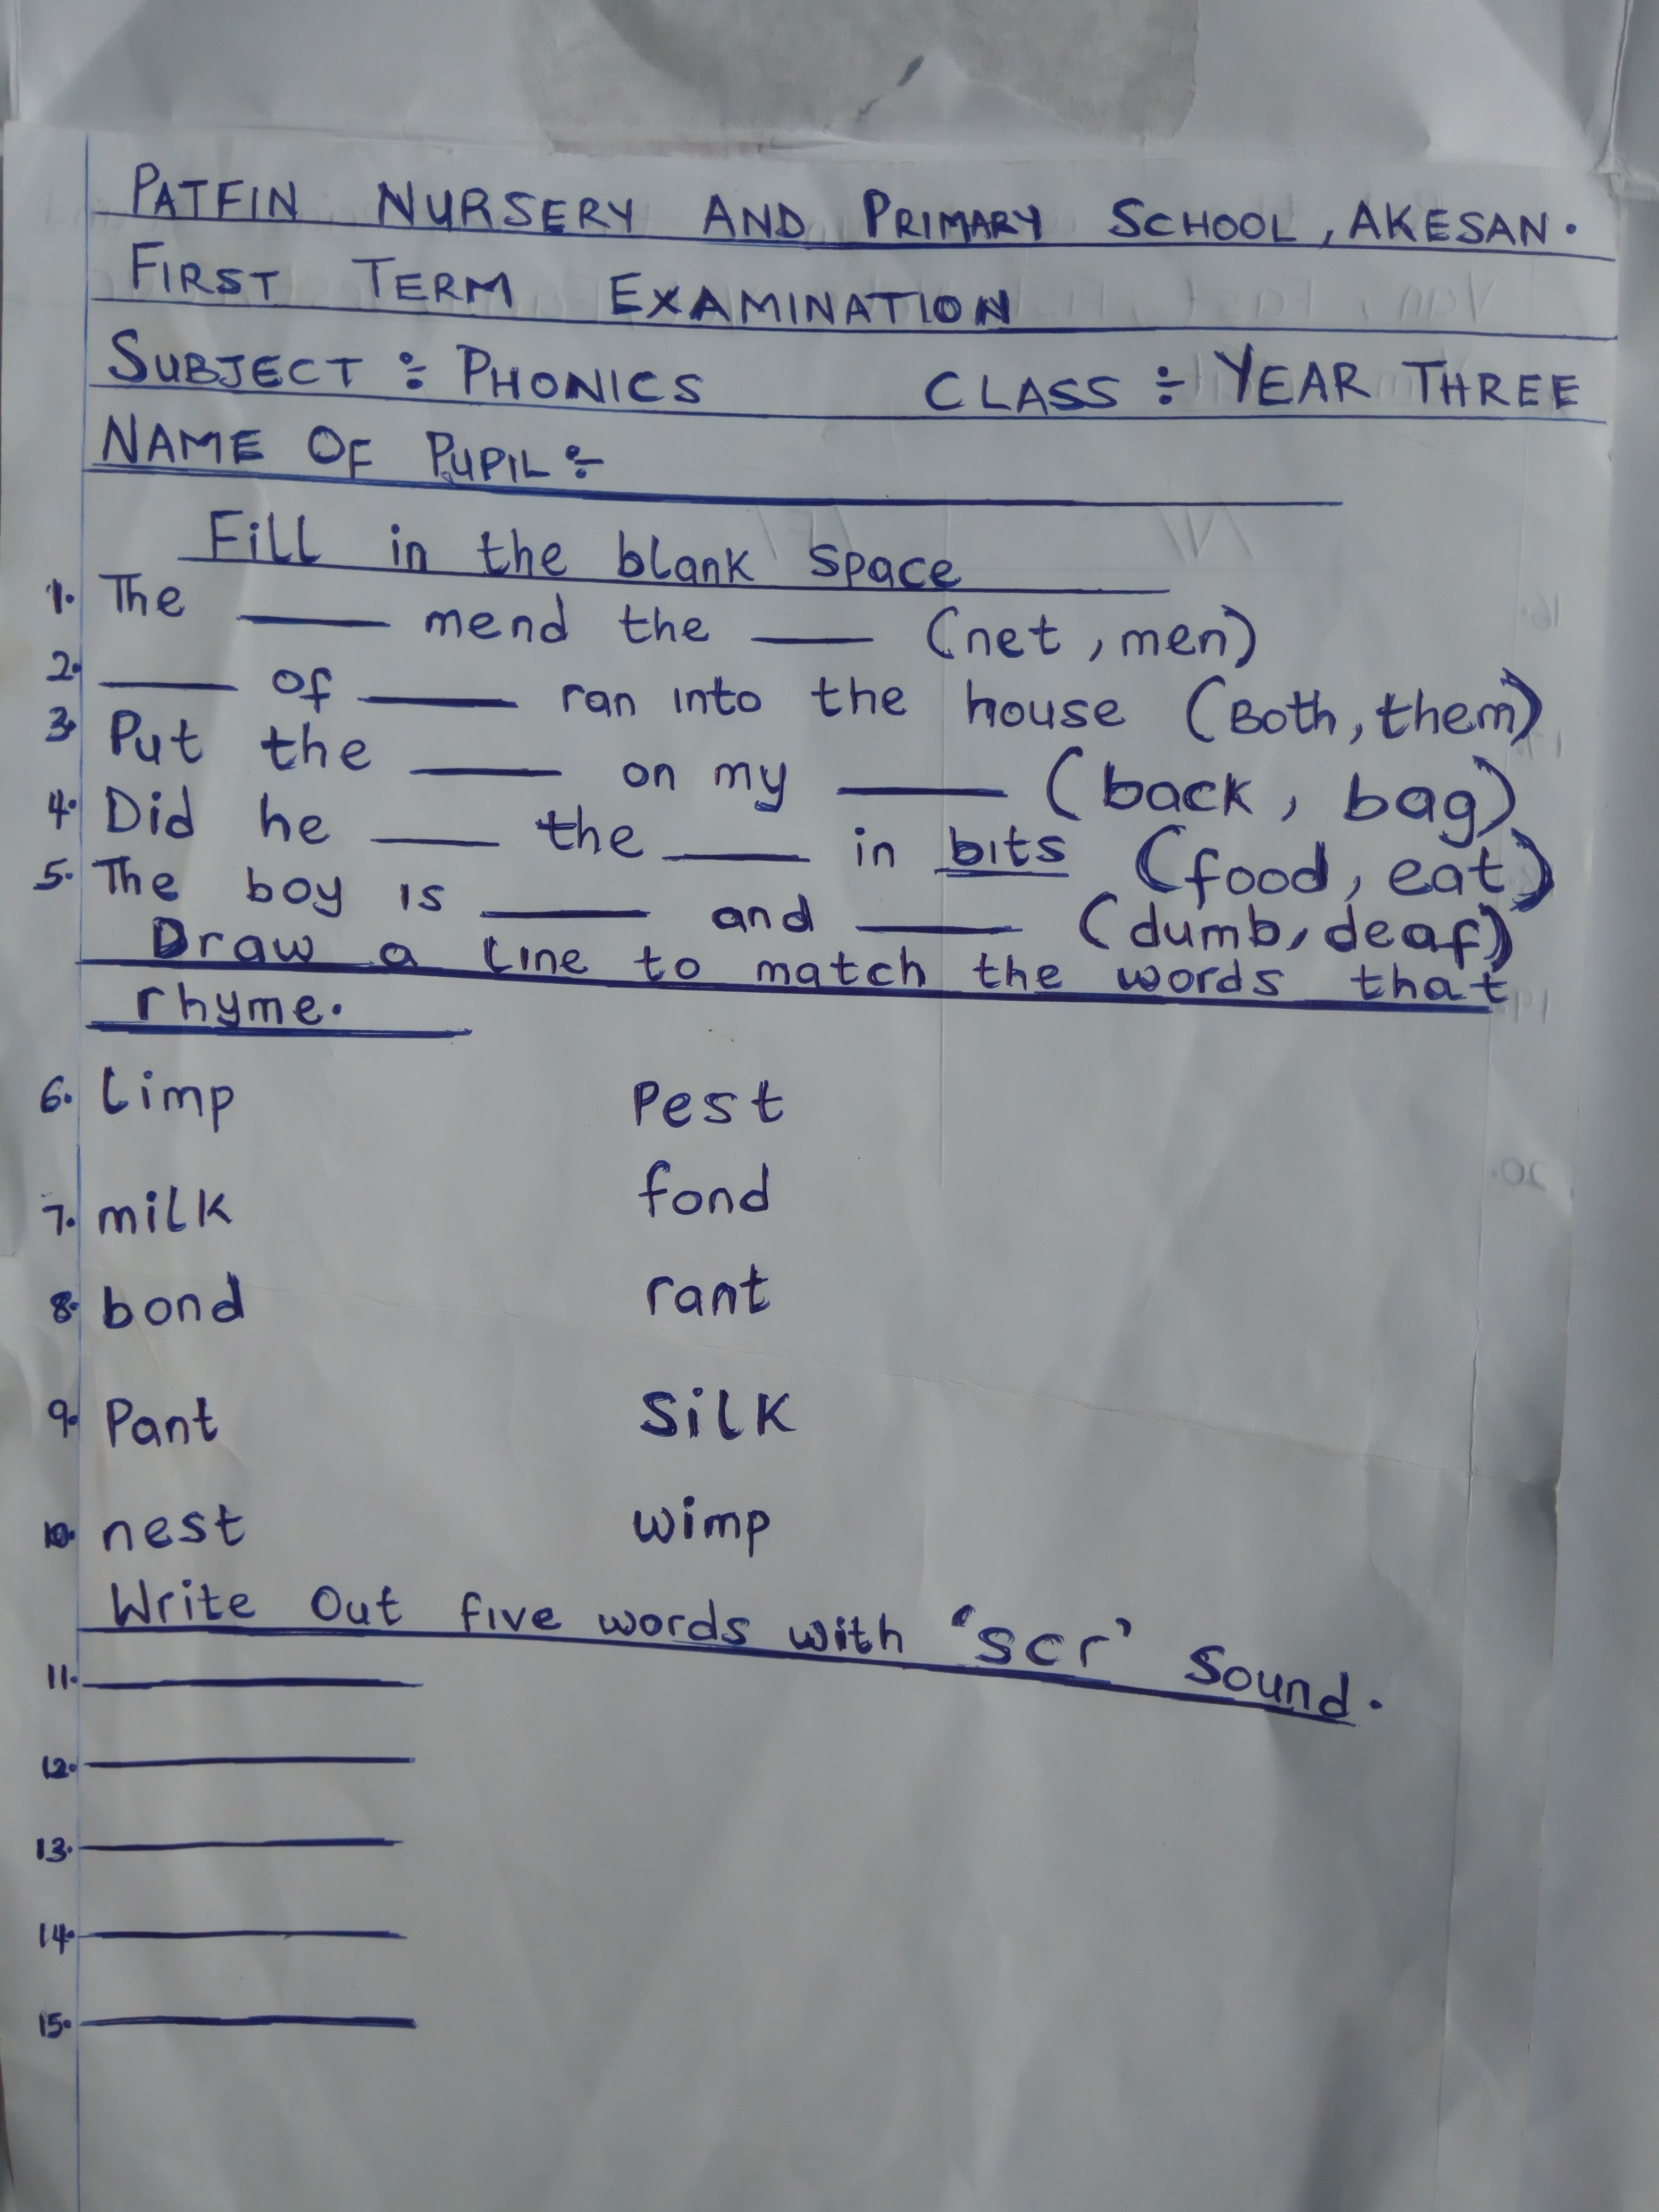 PATFIN NURSERY AND PRIMARY SCHOOL, AKESAN.
FIRST TERM EXAMINATION
SUBJECT ÷ PHONICS CLASS ÷ YEAR THREE
NAME OF PUPIL ÷
Fill in the blank space
1. The ____ mend the ____ (net, men)
2. ____ of ____ ran into the house (Both, them)
3. Put the ____ on my ____ (back, bag)
4. Did he ____ the ____ in bits (food, eat)
5. The boy is ____ and ____ (dumb, deaf)
Draw a line to match the words that
rhyme.
6. Limp Pest
7. milk fond
8. bond rant
9. Pant Silk
10. nest wimp
Write Out five words with 'scr' Sound.
11.
12.
13.
14.
15.